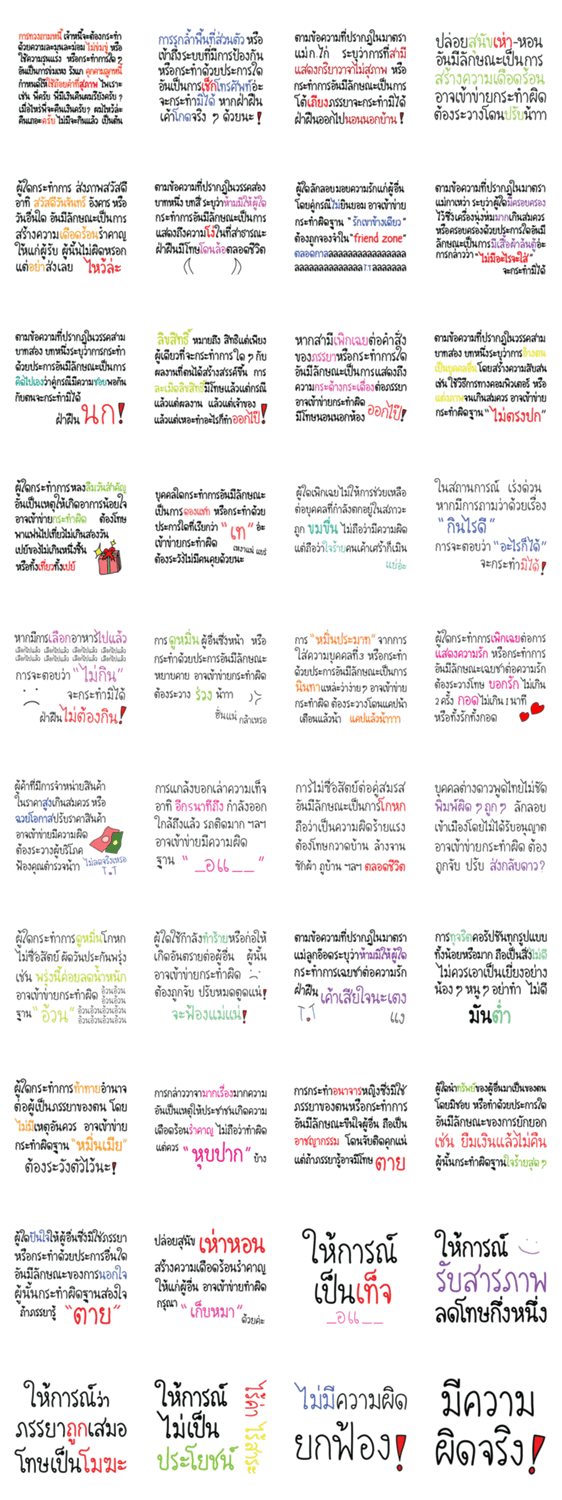 การทวงถามหนี้ เจ้าหนี้จะต้องกระทำ
ด้วยความละมุนละม่อม ไม่ข่มขู่ หรือ
ใช้ความรุนแรง หรือกระทำการใด ๆ
อันเป็นการข่มเหง รังแก คุกคามลูกหนี้
กำหนดให้ใช้ถ้อยคำที่สุภาพ ไพเราะ
เช่น พี่ครับ พี่มีเงินคืนผมรึยังครับ ?
เมื่อไหร่พี่จะคืนเงินครับ? ผมไหว้ล่ะ
คืนเถอะครับ ไม่มีจะกินแล้ว เป็นต้น
การรุกล้ำพื้นที่ส่วนตัว หรือ
เข้าถึงระบบที่มีการป้องกัน
หรือกระทำด้วยประการใด
อันเป็นการเช็กโทรศัพท์อะ
จะกระทำมิได้ หากฝ่าฝืน
เค้าโกดจริง ๆ ด้วยนะ !
ตามข้อความที่ปรากฏในมาตรา
แม่ก.ไก่ ระบุว่าการที่สามี
แสดงกริยาวาจาไม่สุภาพ หรือ
กระทำการอันมีลักษณะเป็นการ
โต้เถียงภรรยาจะกระทำมิได้
ฝ่าฝืนออกไปนอนนอกบ้าน !
ปล่อยสุนัขเห่า-หอน
อันมีลักษณะเป็นการ
สร้างความเดือดร้อน
อาจเข้าข่ายกระทำผิด
ต้องระวางโดนปรับน้าาา
ผู้ใดกระทำการ ส่งภาพสวัสดี
อาทิ สวัสดีวันจันทร์ อังคาร หรือ
วันอื่นใด อันมีลักษณะเป็นการ
สร้างความเดือดร้อนรำคาญ
ให้แก่ผู้รับ ผู้นั้นไม่ผิดหรอก
แต่อย่าส่งเลย ไหว้ล่ะ
ตามข้อความที่ปรากฏในวรรคสอง
บาทหนึ่ง บทสี่ ระบุว่าห้ามมิให้ผู้ใด
กระทำการอันมีลักษณะเป็นการ
แสดงถึงความโง่ในที่สาธารณะ
ฝ่าฝืนมีโทษโดนล้อตลอดชีวิต
ผู้ใดลักลอบมอบความรักแก่ผู้อื่น
โดยคู่กรณีไม่ยินยอม อาจเข้าข่าย
กระทำผิดฐาน "รักเขาข้างเดียว"
ต้องถูกจองจำใน"friend zone"
ตลอดกาลaaaaaaaaaaaaaaaa
aaaaaaaaaaaaaaaT.Taaaaaaaa
ตามข้อความที่ปรากฏในมาตรา
แม่กาเหว่า ระบุว่าผู้ใดมีครอบครอง
ไว้ซึ่งเครื่องนุ่งห่มมากเกินสมควร
หรือครอบครองด้วยประการใดอันมี
ลักษณะเป็นการมีเสื้อผ้าล้นตู้อ่ะ
การกล่าวว่า "ไม่มีอะไรจะใส่"
จะกระทำมิได้
ตามข้อความที่ปรากฏในวรรคสาม
บาทสอง บทหนึ่งระบุว่าการกระทำ
ด้วยประการอันมีลักษณะเป็นการ
คิดไปเองว่าคู่กรณีมีความชอบพอกัน
กับตนจะกระทำมิได้
ฝ่าฝืน นก!
ลิขสิทธิ์ หมายถึง สิทธิแต่เพียง
ผู้เดียวที่จะกระทำการใด ๆ กับ
ผลงานที่ตนได้สร้างสรรค์ขึ้น การ
ละเมิดลิขสิทธิ์มีโทษแล้วแต่กรณี
แล้วแต่ผลงาน แล้วแต่เจ้าของ
แล้วแต่เหอะทำอะไรก็ทำออกไป๊!
หากสามีเพิกเฉยต่อคำสั่ง
ของภรรยาหรือกระทำการใด
อันมีลักษณะเป็นการแสดงถึง
ความกระด้างกระเดื่องต่อภรรยา
อาจเข้าข่ายกระทำผิด
มีโทษนอนนอกห้อง ออกไป๊!
ตามข้อความที่ปรากฏในวรรคสาม
บาทสอง บทหนึ่งระบุว่าการอ้างตน
เป็นบุคคลอื่น โดยสร้างความสับสน
เช่น ใช้วิธีการทางคอมพิวเตอร์ หรือ
แต่งภาพจนเกินสมควร อาจเข้าข่าย
กระทำผิดฐาน "ไม่ตรงปก"
ผู้ใดกระทำการหลงลืมวันสำคัญ
อันเป็นเหตุให้เกิดอาการน้อยใจ
อาจเข้าข่ายกระทำผิด ต้องโทษ
พาแฟนไปเที่ยวไม่เกินสองวัน
เปย์ของไม่เกินหนึ่งชิ้น
หรือทั้งเที่ยวทั้งเปย์
บุคคลใดกระทำการอันมีลักษณะ
เป็นการลอยแพ หรือกระทำด้วย
ประการใดที่เรียกว่า "เท" อ่ะ
เข้าข่ายกระทำผิด
ต้องระวังไม่มีคนคุยด้วยนะ
ผู้ใดเพิกเฉยไม่ให้การช่วยเหลือ
ต่อบุคคลที่กำลังตกอยู่ในสภาวะ
ถูก ขมขื่น ไม่ถือว่ามีความผิด
แต่ถือว่าใจร้ายคนเค้าเศร้าก็เมิน
แย่อ่ะ
ในสถานการณ์ เร่งด่วน
หากมีการถามว่าด้วยเรื่อง
"กินไรดี"
การจะตอบว่า "อะไรก็ได้"
จะกระทำมิได้!
หากมีการเลือกอาหารไปแล้ว
เลือกไปแล้ว เลือกไปแล้ว เลือกไปแล้ว เลือกไปแล้ว
เลือกไปแล้ว เลือกไปแล้ว เลือกไปแล้ว เลือกไปแล้ว
การจะตอบว่า "ไม่กิน"
จะกระทำมิได้
ฝ่าฝืนไม่ต้องกิน!
การ ดูหมิ่น ผู้อื่นซึ่งหน้า หรือ
กระทำด้วยประการอันมีลักษณะ
หยาบคาย อาจเข้าข่ายกระทำผิด
ต้องระวาง ร่วง น้าาา
ฮั่นแน่ กล้าเหรอ
การ "หมิ่นประมาท" จากการ
ใส่ความบุคคลที่3 หรือกระทำ
ด้วยประการอันมีลักษณะเป็นการ
นินทาแหล่ะว่าง่าย ๆ อาจเข้าข่าย
กระทำผิด ต้องระวางโดนแคปน้า
เตือนแล้วน้า แคปแล้วน้าาา
ผู้ใดกระทำการเพิกเฉยต่อการ
แสดงความรัก หรือกระทำการ
อันมีลักษณะเฉยชาต่อความรัก
ต้องระวางโทษ บอกรัก ไม่เกิน
2 ครั้ง กอดไม่เกิน 1 นาที
หรือทั้งรักทั้งกอด
ผู้ค้าที่มีการจำหน่ายสินค้า
ในราคาสูงเกินสมควร หรือ
ฉวยโอกาสปรับราคาสินค้า
อาจเข้าข่ายมีความผิด
ต้องระวางผู้บริโภค
ฟ้องคุณตำรวจน้า ไม่ลดจริงเหรอ
T.T
การแกล้งบอกเล่าความเท็จ
อาทิ อีก5นาทีถึง กำลังออก
ใกล้ถึงแล้ว รถติดมาก ฯลฯ
อาจเข้าข่ายมีความผิด
ฐาน "_อแ__"
การไม่ซื่อสัตย์ต่อคู่สมรส
อันมีลักษณะเป็นการโกหก
ถือว่าเป็นความผิดร้ายแรง
ต้องโทษกวาดบ้าน ล้างจาน
ซักผ้า ถูบ้าน ฯลฯ ตลอดชีวิต
บุคคลต่างดาวพูดไทยไม่ชัด
พิมพ์ผิด ๆ ถูก ๆ ลักลอบ
เข้าเมืองโดยไม่ได้รับอนุญาต
อาจเข้าข่ายกระทำผิด ต้อง
ถูกจับ ปรับ ส่งกลับดาว?
ผู้ใดกระทำการดูหมิ่นโกหก
ไม่ซื่อสัตย์ ผัดวันประกันพรุ่ง
เช่น พรุ่งนี้ค่อยลดน้ำหนัก
อาจเข้าข่ายกระทำผิด อ้วนอ้วน
ฐาน "อ้วน" อ้วนอ้วนอ้วนอ้วน
ผู้ใดใช้กำลังทำร้ายหรือก่อให้
เกิดอันตรายต่อผู้อื่น ผู้นั้น
อาจเข้าข่ายกระทำผิด
ต้องถูกจับ ปรับหมดตูดแน่!
จะฟ้องแม่แน่!
ตามข้อความที่ปรากฏในมาตรา
แม่ลูกอ๊อดระบุว่าห้ามมิให้ผู้ใด
กระทำการเฉยชาต่อความรัก
ฝ่าฝืน เค้าเสียใจนะเตง
T.T แง
การทุจริตคอรัปชันทุกรูปแบบ
ทั้งน้อยหรือมาก ถือเป็นสิ่งไม่ดี
ไม่ควรเอาเป็นเยี่ยงอย่าง
น้อง ๆ หนู ๆ อย่าทำ ไม่ดี
มันต่ำ
ผู้ใดกระทำการท้าทายอำนาจ
ต่อผู้เป็นภรรยาของตน โดย
ไม่มีเหตุอันควร อาจเข้าข่าย
กระทำผิดฐาน "หมิ่นเมีย"
ต้องระวังตัวไว้นะ!
การกล่าววาจามากเรื่องมากความ
อันเป็นเหตุให้ประชาชนเกิดความ
เดือดร้อนรำคาญ ไม่ถือว่าทำผิด
แต่ควร "หุบปาก" บ้าง
การกระทำอนาจารหญิงซึ่งมิใช่
ภรรยาของตนหรือกระทำการ
อันมีลักษณะขืนใจผู้อื่น ถือเป็น
อาชญากรรม โดนจับติดคุกแน่
แต่ถ้าภรรยารู้อาจมีโทษ ตาย
ผู้ใดนำทรัพย์ของผู้อื่นมาเป็นของตน
โดยมิชอบ หรือทำด้วยประการใด
อันมีลักษณะของการยักยอก
เช่น ยืมเงินแล้วไม่คืน
ผู้นั้นกระทำผิดฐานใจร้ายสุด ๆ
ผู้ใดปันใจให้ผู้อื่นซึ่งมิใช่ภรรยา
หรือกระทำด้วยประการอื่นใด
อันมีลักษณะของการนอกใจ
ผู้นั้นกระทำผิดฐานสองใจ
ถ้าภรรยารู้ "ตาย"
ปล่อยสุนัข เห่าหอน
สร้างความเดือดร้อนรำคาญ
ให้แก่ผู้อื่น อาจเข้าข่ายทำผิด
กรุณา "เก็บหมา" ด้วยค่ะ
ให้การณ์
เป็นเท็จ
_อแ__
ให้การณ์
รับสารภาพ
ลดโทษกึ่งหนึ่ง
ให้การณ์ว่า
ภรรยาถูกเสมอ
โทษเป็นโมฆะ
ให้การณ์
ไม่เป็น
ประโยชน์
ไร้ค่า
ไร้สาระ
ไม่มีความผิด
ยกฟ้อง!
มีความ
ผิดจริง!